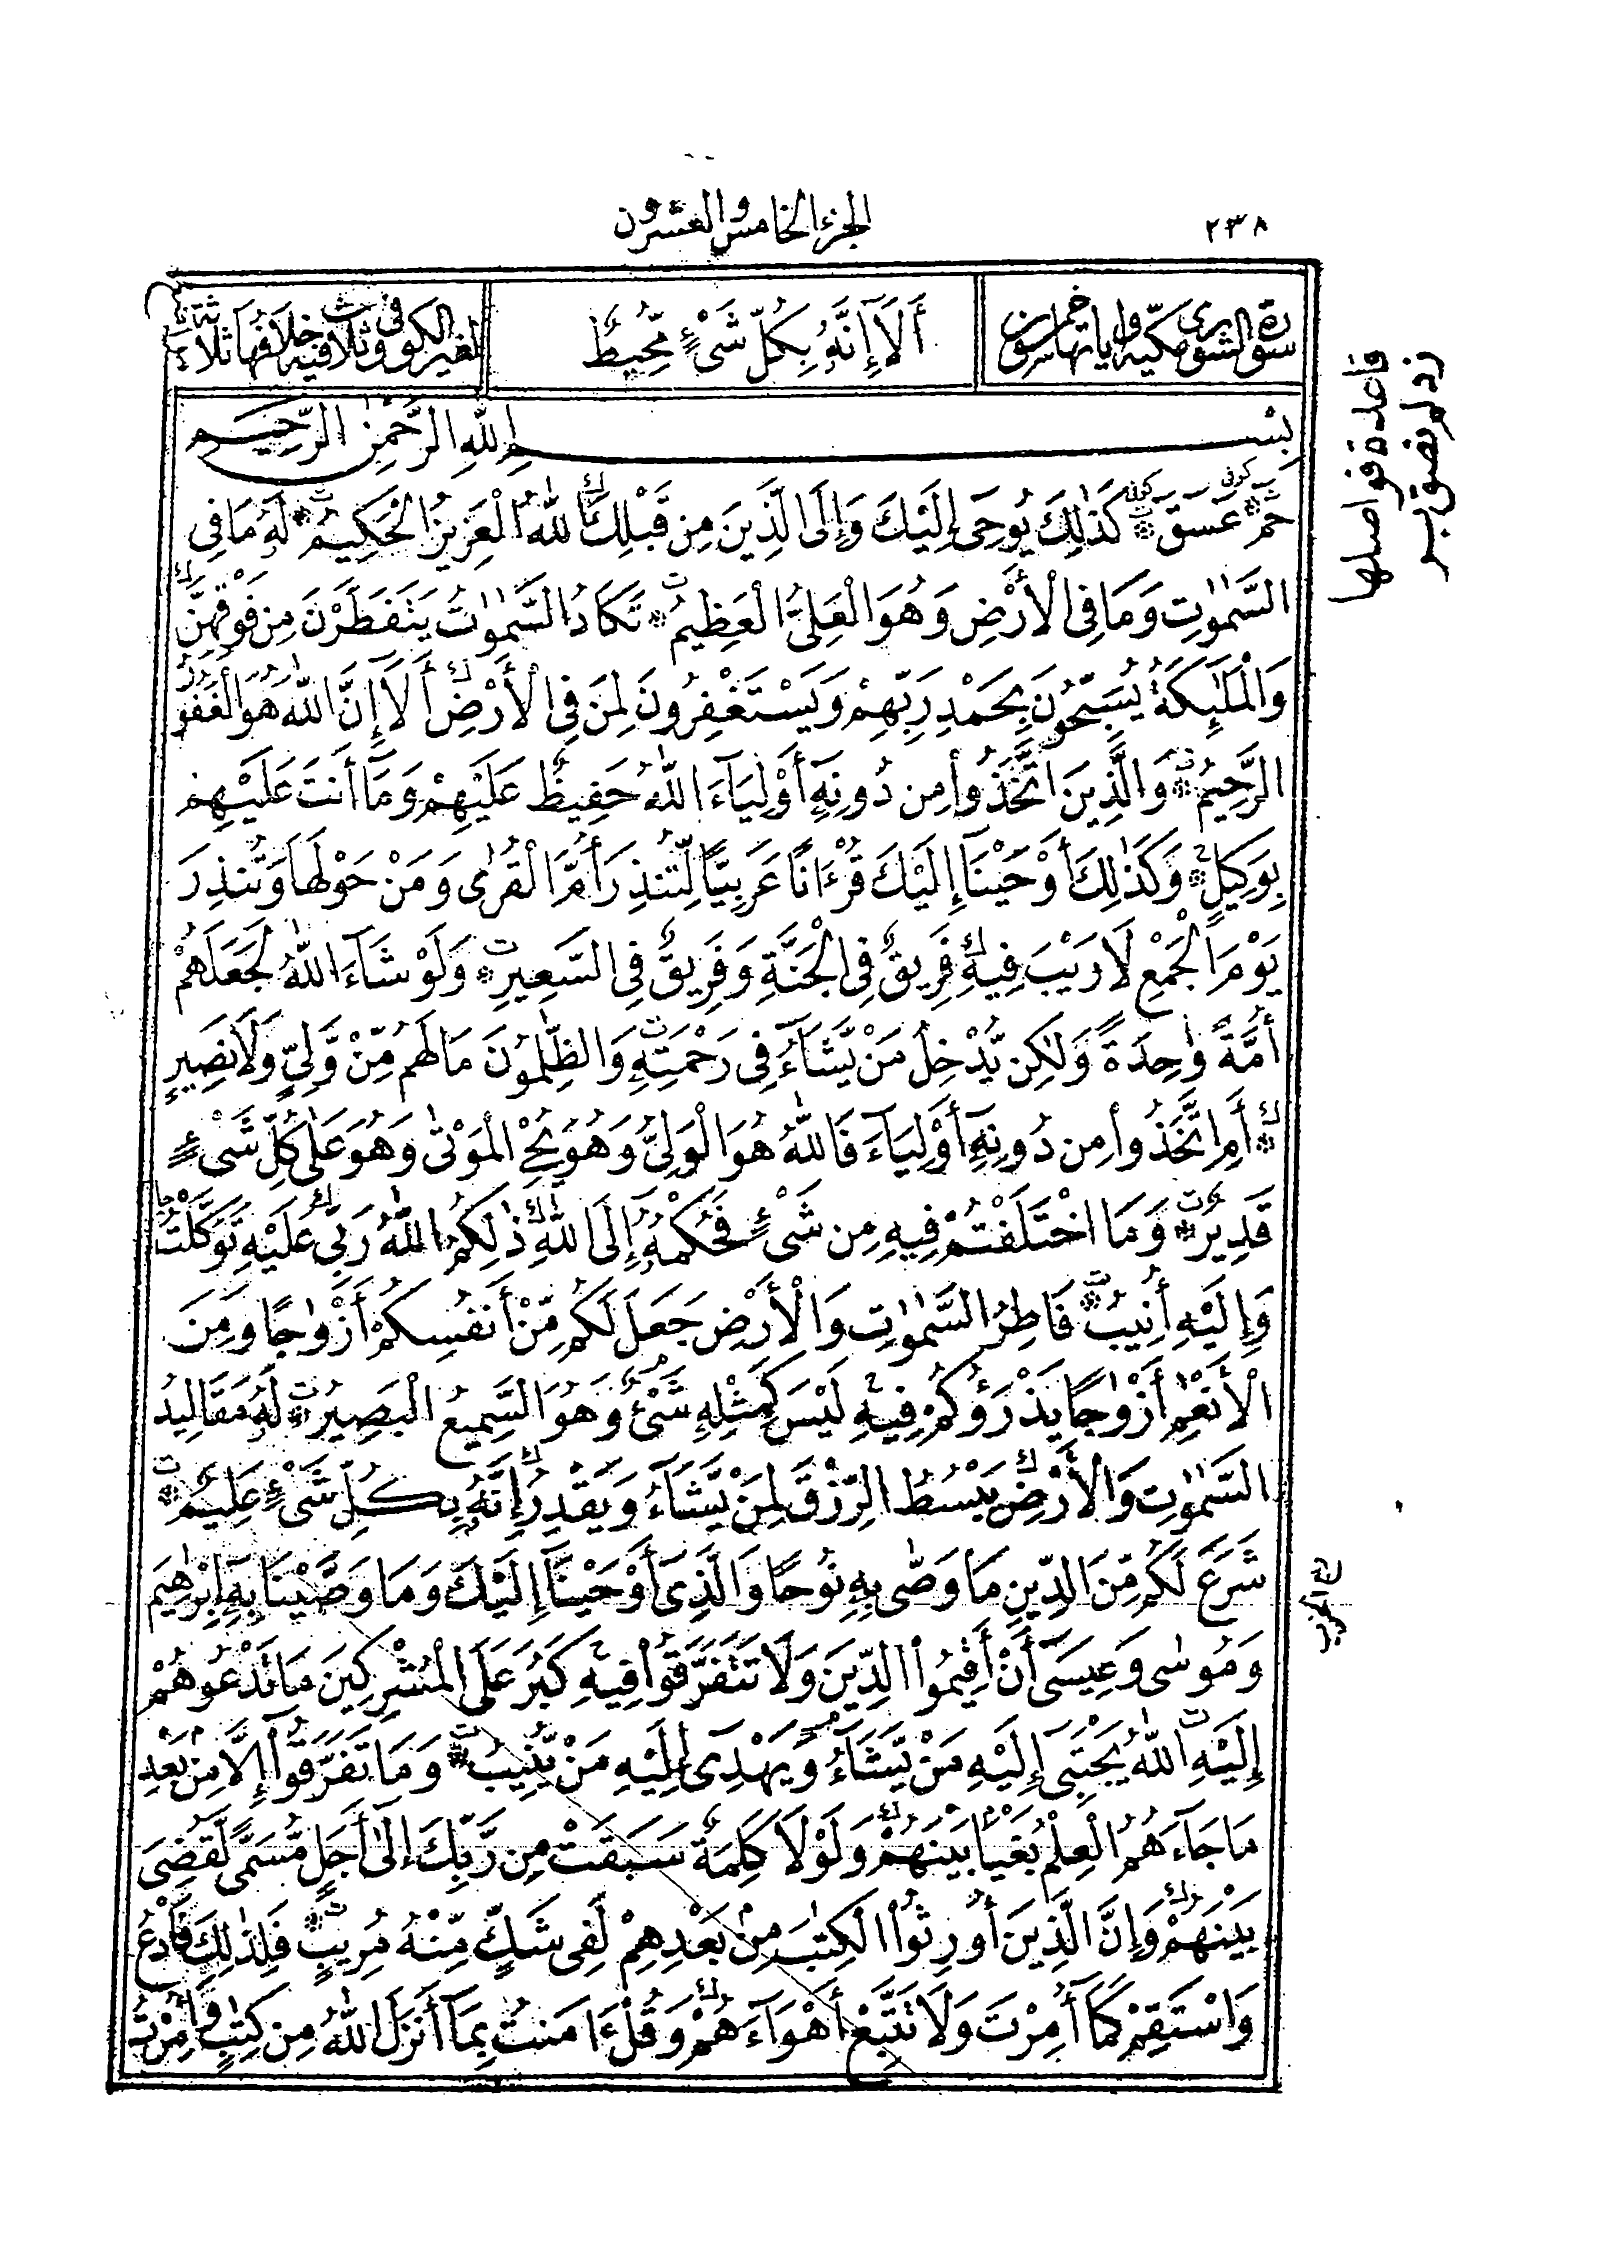 ٢٣٨
الجزء الخامس والعشرون
سورة الشورى مكية وآياتها خمسون
أَلَآ إِنَّهُۥ بِكُلِّ شَىْءٍ مُّحِيطٌ
لغير الكوفى وثلاث فيه خلافها ثلاثة
بِسْمِ اللَّهِ الرَّحْمَٰنِ الرَّحِيمِ
حمٓ عٓسٓقٓ كَذَٰلِكَ يُوحِىٓ إِلَيْكَ وَإِلَى الَّذِينَ مِن قَبْلِكَ اللَّهُ الْعَزِيزُ الْحَكِيمُ لَهُۥ مَا فِى
السَّمَٰوَٰتِ وَمَا فِى الْأَرْضِ وَهُوَ الْعَلِىُّ الْعَظِيمُ تَكَادُ السَّمَٰوَٰتُ يَتَفَطَّرْنَ مِن فَوْقِهِنَّ
وَالْمَلَٰٓئِكَةُ يُسَبِّحُونَ بِحَمْدِ رَبِّهِمْ وَيَسْتَغْفِرُونَ لِمَن فِى الْأَرْضِ أَلَآ إِنَّ اللَّهَ هُوَ الْغَفُورُ
الرَّحِيمُ وَالَّذِينَ اتَّخَذُوا۟ مِن دُونِهِۦٓ أَوْلِيَآءَ اللَّهُ حَفِيظٌ عَلَيْهِمْ وَمَآ أَنتَ عَلَيْهِم
بِوَكِيلٍ وَكَذَٰلِكَ أَوْحَيْنَآ إِلَيْكَ قُرْءَانًا عَرَبِيًّا لِّتُنذِرَ أُمَّ الْقُرَىٰ وَمَنْ حَوْلَهَا وَتُنذِرَ
يَوْمَ الْجَمْعِ لَا رَيْبَ فِيهِ فَرِيقٌ فِى الْجَنَّةِ وَفَرِيقٌ فِى السَّعِيرِ وَلَوْ شَآءَ اللَّهُ لَجَعَلَهُمْ
أُمَّةً وَٰحِدَةً وَلَٰكِن يُدْخِلُ مَن يَشَآءُ فِى رَحْمَتِهِۦ وَالظَّٰلِمُونَ مَا لَهُم مِّن وَلِىٍّ وَلَا نَصِيرٍ
أَمِ اتَّخَذُوا۟ مِن دُونِهِۦٓ أَوْلِيَآءَ فَاللَّهُ هُوَ الْوَلِىُّ وَهُوَ يُحْىِ الْمَوْتَىٰ وَهُوَ عَلَىٰ كُلِّ شَىْءٍ
قَدِيرٌ وَمَا اخْتَلَفْتُمْ فِيهِ مِن شَىْءٍ فَحُكْمُهُۥٓ إِلَى اللَّهِ ذَٰلِكُمُ اللَّهُ رَبِّى عَلَيْهِ تَوَكَّلْتُ
وَإِلَيْهِ أُنِيبُ فَاطِرُ السَّمَٰوَٰتِ وَالْأَرْضِ جَعَلَ لَكُم مِّنْ أَنفُسِكُمْ أَزْوَٰجًا وَمِنَ
الْأَنْعَٰمِ أَزْوَٰجًا يَذْرَؤُكُمْ فِيهِ لَيْسَ كَمِثْلِهِۦ شَىْءٌ وَهُوَ السَّمِيعُ الْبَصِيرُ لَهُۥ مَقَالِيدُ
السَّمَٰوَٰتِ وَالْأَرْضِ يَبْسُطُ الرِّزْقَ لِمَن يَشَآءُ وَيَقْدِرُ إِنَّهُۥ بِكُلِّ شَىْءٍ عَلِيمٌ
شَرَعَ لَكُم مِّنَ الدِّينِ مَا وَصَّىٰ بِهِۦ نُوحًا وَالَّذِىٓ أَوْحَيْنَآ إِلَيْكَ وَمَا وَصَّيْنَا بِهِۦٓ إِبْرَٰهِيمَ
وَمُوسَىٰ وَعِيسَىٰٓ أَنْ أَقِيمُوا۟ الدِّينَ وَلَا تَتَفَرَّقُوا۟ فِيهِ كَبُرَ عَلَى الْمُشْرِكِينَ مَا تَدْعُوهُمْ
إِلَيْهِ اللَّهُ يَجْتَبِىٓ إِلَيْهِ مَن يَشَآءُ وَيَهْدِىٓ إِلَيْهِ مَن يُنِيبُ وَمَا تَفَرَّقُوٓا۟ إِلَّا مِنۢ بَعْدِ
مَا جَآءَهُمُ الْعِلْمُ بَغْيًۢا بَيْنَهُمْ وَلَوْلَا كَلِمَةٌ سَبَقَتْ مِن رَّبِّكَ إِلَىٰٓ أَجَلٍ مُّسَمًّى لَّقُضِىَ
بَيْنَهُمْ وَإِنَّ الَّذِينَ أُورِثُوا۟ الْكِتَٰبَ مِنۢ بَعْدِهِمْ لَفِى شَكٍّ مِّنْهُ مُرِيبٍ فَلِذَٰلِكَ فَادْعُ
وَاسْتَقِمْ كَمَآ أُمِرْتَ وَلَا تَتَّبِعْ أَهْوَآءَهُمْ وَقُلْ ءَامَنتُ بِمَآ أَنزَلَ اللَّهُ مِن كِتَٰبٍ وَأُمِرْتُ
قاعدة فواصلها